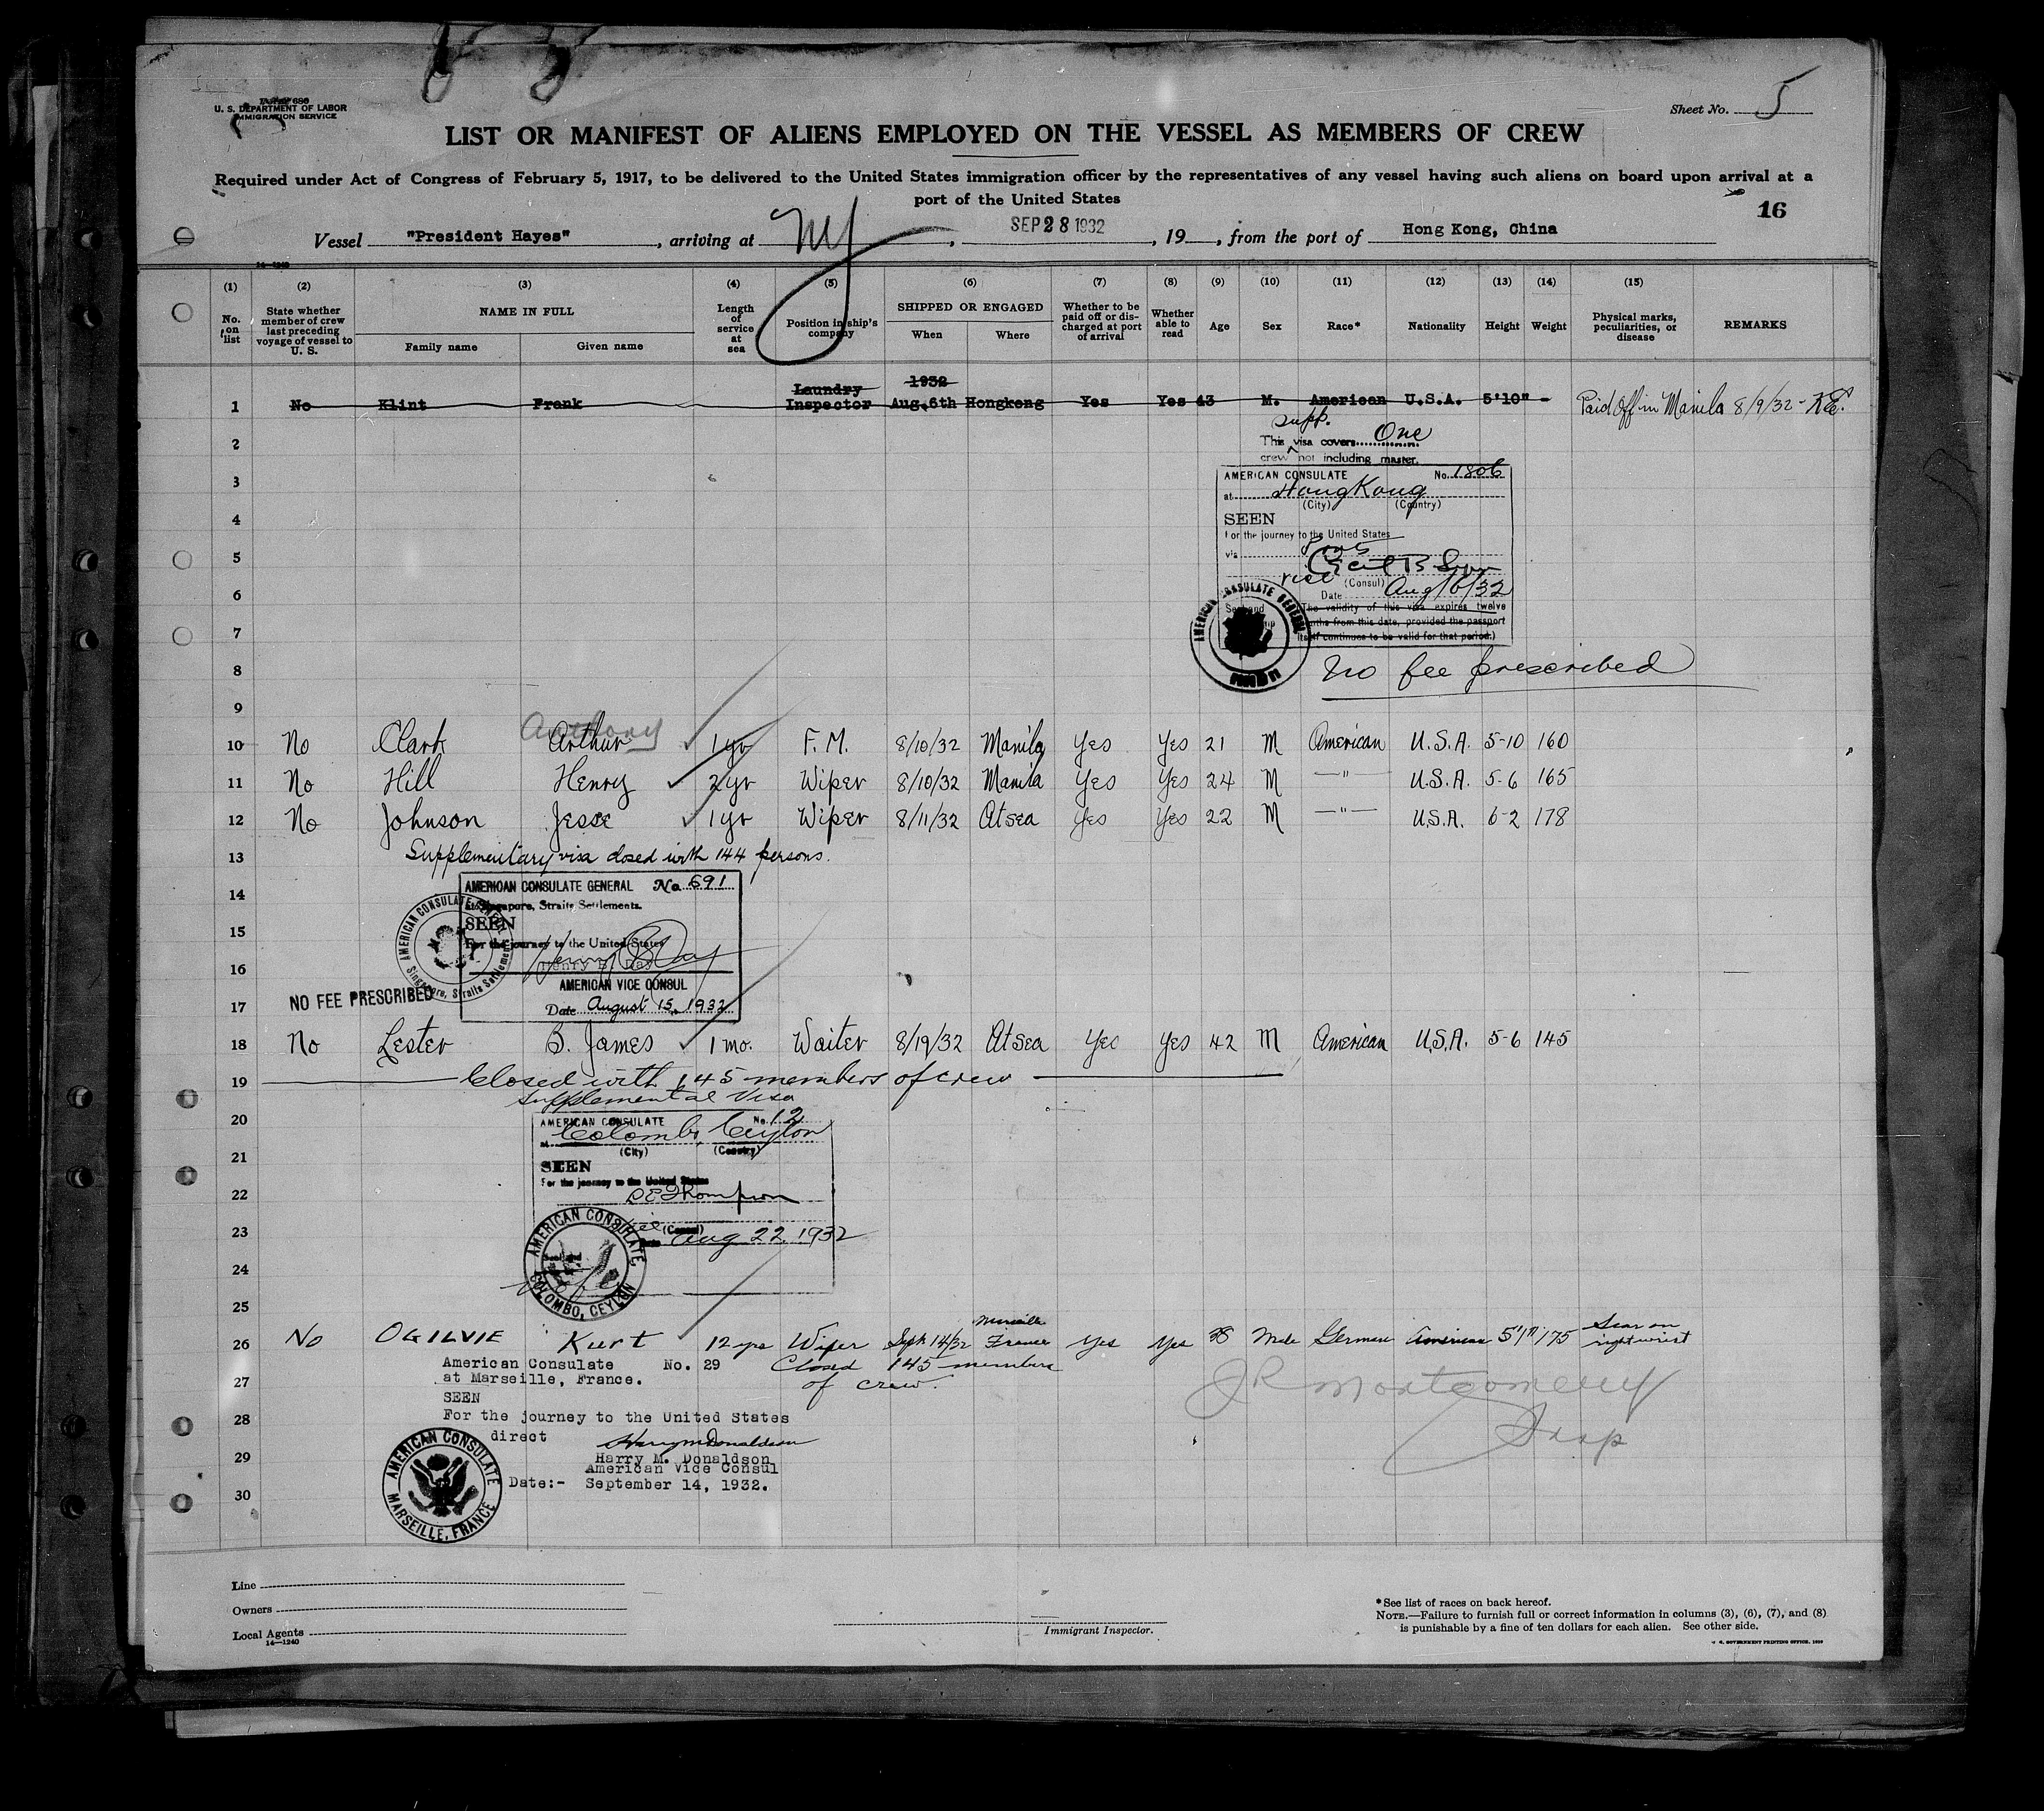 Form 680
U. S. DEPARTMENT OF LABOR
IMMIGRATION SERVICE
Sheet No. 5
LIST OR MANIFEST OF ALIENS EMPLOYED ON THE VESSEL AS MEMBERS OF CREW
Required under Act of Congress of February 5, 1917, to be delivered to the United States immigration officer by the representatives of any vessel having such aliens on board upon arrival at a
port of the United States
16
Vessel "President Hayes", arriving at NY, SEP 28 1932, 19 , from the port of Hong Kong, China
14—1240
(1) (2) (3) (4) (5) (6) (7) (8) (9) (10) (11) (12) (13) (14) (15)
No. on list
State whether member of crew last preceding voyage of vessel to U. S.
NAME IN FULL
Family name
Given name
Length of service at sea
Position in ship's company
SHIPPED OR ENGAGED
When
Where
Whether to be paid off or discharged at port of arrival
Whether able to read
Age
Sex
Race*
Nationality
Height
Weight
Physical marks, peculiarities, or disease
REMARKS
1 No Klint Frank Laundry Inspector 1932 Aug. 6th Hongkong Yes Yes 43 M. American U.S.A. 5'10" - Paid Off in Manila 8/9/32 -
2
supp.
This visa covers One
crew not including master.
3
AMERICAN CONSULATE No. 1806
at Hong Kong
(City) (Country)
4
SEEN
For the journey to the United States
5
via Ports
vice (Consul)
6
Date Aug/6/32
(The validity of this visa expires twelve
months from this date, provided the passport
7
itself continues to be valid for that period.)
AMERICAN CONSULATE GENERAL
8
No fee prescribed
9
Anthony
10 No Clark Arthur 1 yr F. M. 8/10/32 Manila Yes Yes 21 M American U.S.A. 5-10 160
11 No Hill Henry 2 yr Wiper 8/10/32 Manila Yes Yes 24 M —"— U.S.A. 5-6 165
12 No Johnson Jesse 1 yr Wiper 8/11/32 At sea Yes Yes 22 M —"— U.S.A. 6-2 178
13 Supplementary visa closed with 144 persons.
14
AMERICAN CONSULATE GENERAL No. 691
at Singapore, Straits Settlements.
15
SEEN
For the journey to the United States
16
Henry B. Day
AMERICAN VICE CONSUL
17
Date August 15, 1932
AMERICAN CONSULATE GENERAL
Singapore, Straits Settlements
NO FEE PRESCRIBED
18 No Lester B. James 1 mo. Waiter 8/19/32 At sea Yes Yes 42 M American U.S.A. 5-6 145
19 Closed with 145 members of crew
Supplemental Visa
20
AMERICAN CONSULATE No. 12
at Colombo, Ceylon
21
(City) (Country)
SEEN
For the journey to the United States
22
Thompson
23
vice (Consul)
Date Aug 22 1932
24
AMERICAN CONSULATE
COLOMBO, CEYLON
25
26 No OGILVIE Kurt 12 yrs Wiper Sept 14/32 Marseille France Yes Yes 38 Male German American 5'11" 175 Scar on right wrist
American Consulate No. 29 Closed 145 members
27
at Marseille, France. of crew.
SEEN
28
For the journey to the United States
direct
JR Montgomery
Insp
29
Harry M. Donaldson
Harry M. Donaldson
American Vice Consul
30
Date:- September 14, 1932.
AMERICAN CONSULATE
MARSEILLE, FRANCE
Line
Owners
Local Agents
14—1240
Immigrant Inspector.
*See list of races on back hereof.
NOTE.—Failure to furnish full or correct information in columns (3), (6), (7), and (8)
is punishable by a fine of ten dollars for each alien. See other side.
U. S. GOVERNMENT PRINTING OFFICE